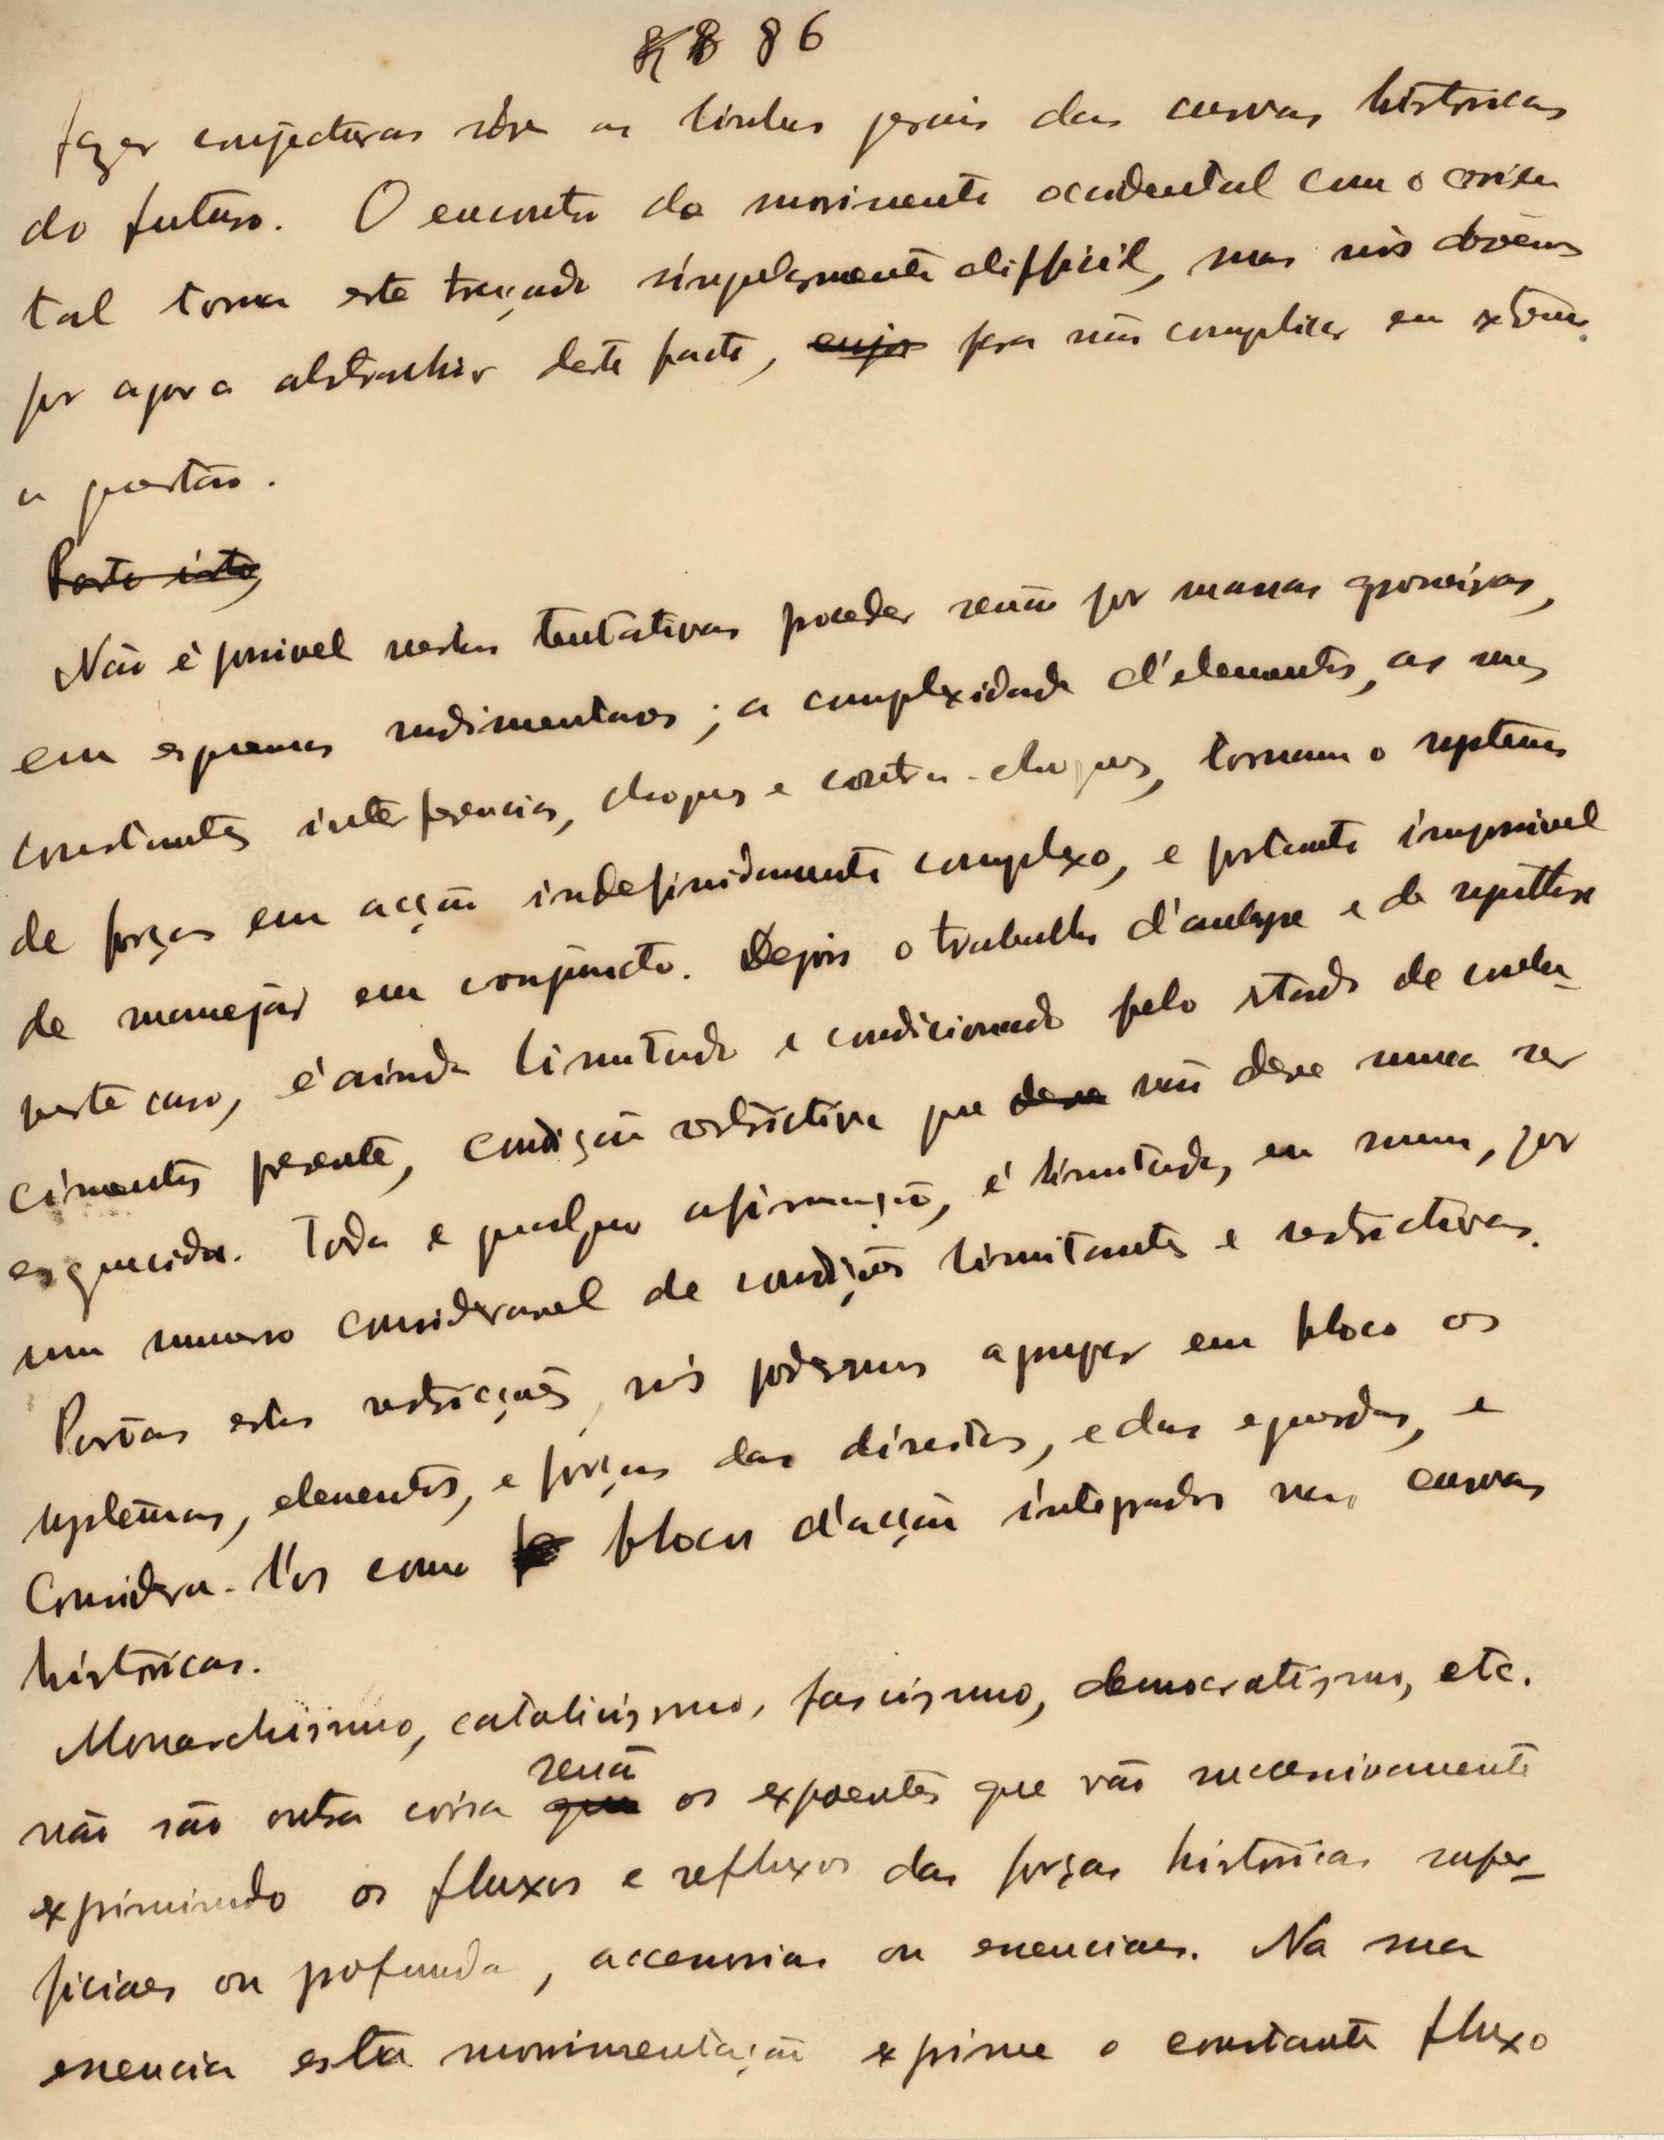 86
fazer conjecturas sôbre as linhas gerais das curvas historicas
do futuro. O encontro do movimento occidental com o orien
tal torna este traçado singularmente difficil, mas nós devêmos
por agora abstrahir deste facto, para não complicar em extremo
a questão.
Posto isto,
Não é possivel nestas tentativas proceder senão por massas grosseiras,
em esquemas rudimentares; a complexidade d'elementos, as suas
constantes interferencias, choques e contra-choques, tornam o systema
de forças em acção indefinidamente complexo, e portanto impossivel
de manejar em conjuncto. Depois o trabalho d'analyse e de synthese
neste caso, é ainda limitado e condicionado pelo estado de conhe-
cimentos presente, condição restrictiva que deve não deve nunca ser
esquecida. Toda e qualquer afirmação, é limitada, em suma, por
um numero consideravel de condições limitantes e restrictivas.
Postas estas restricções, nós poderemos agrupar em bloco os
systemas, elementos, e forças das direitas, e das esquerdas, e
considera-l'os como blocos d'acção integrados nas curvas
históricas.
Monarchismo, catolicismo, fascismo, democratismo, etc.
senão
não são outra coisa que os expoentes que vão successivamente
exprimindo os fluxos e refluxos das forças históricas super-
ficiaes ou profundas, accessorias ou essenciaes. Na sua
essencia esta movimentação exprime o constante fluxo